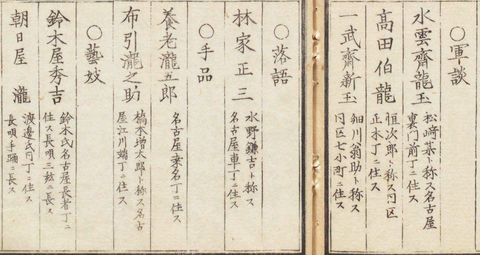 ○軍談
水雲齋龍玉
松﨑某ト称ス名古屋
裏門前丁ニ住ス
髙田伯龍
恒次郎ト称ス同区
正木丁ニ住ス
一武齋新玉
細川翁助ト称ス
同区七小町ニ住ス
○落語
林家正三
水野鎌吉ト称ス
名古屋車丁ニ住ス
○手品
養老瀧五郎
名古屋桑名丁ニ住ス
布引瀧之助
橋本増太郎ト称ス名古
屋江川端丁ニ住ス
○藝妓
鈴木屋秀吉
鈴木氏名古屋長者丁ニ
住ス長唄三絃ニ長ス
朝日屋 瀧
渡邊氏同丁ニ住ス
長唄手踊ニ長ス